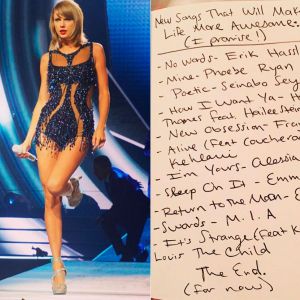 New Songs That Will Make
Life More Awesome
(I promise!)
- No Words - Erik Hassl
- Mine - Phoebe Ryan
- Poetic - Seinabo Sey
- How I Want Ya -
Thames Feat. Hailee Stein
- New Obsession -
- Alive (Feat
Kehlani
- I'm Yours - Alessia
- Sleep On It - Emm
- Return to the Moon -
- Swords - M.I.A
- It's Strange (Feat K
Louis The Child
The End.
(for now)